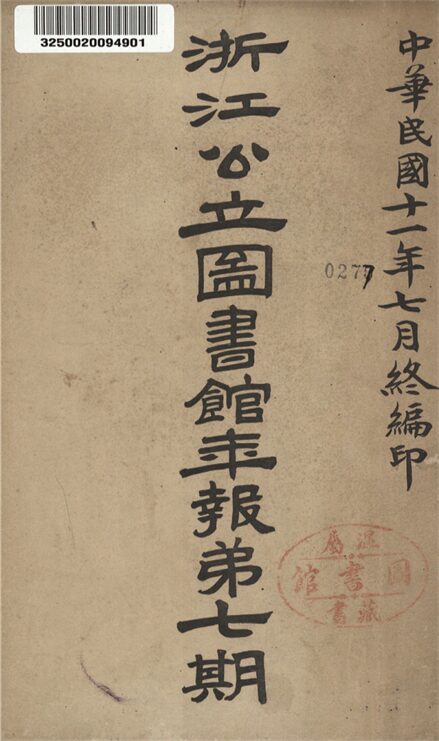 3250020094901
中華民國十一年七月終編印
浙江公立圖書館年報弟七期
0277
溫屬
圖書館
藏書